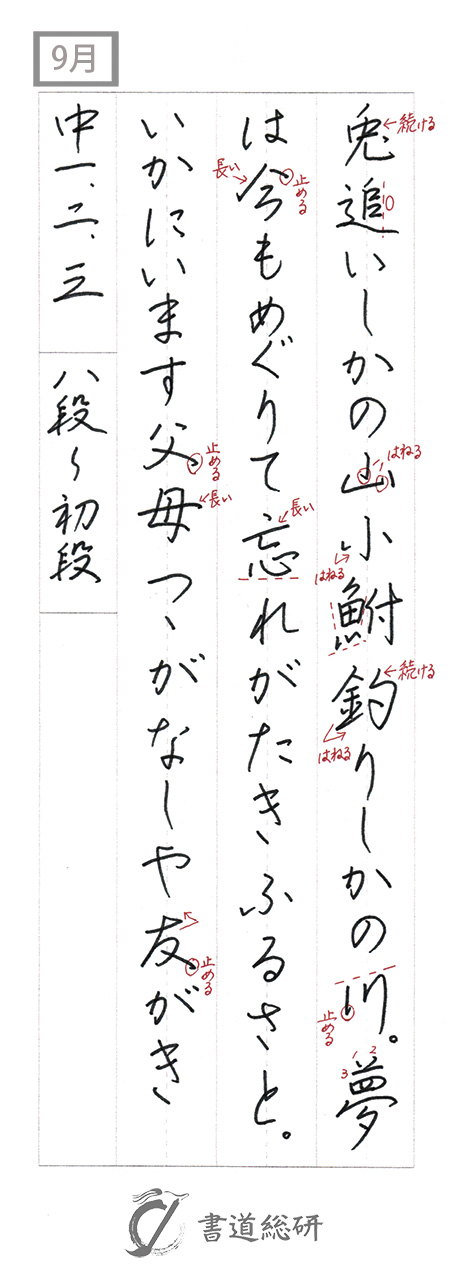 9月
兎追いしかの山小鮒釣りしかの川。夢
続ける
はねる
はねる
続ける
はねる
止める
1 2 3
は今もめぐりて忘れがたきふるさと。
長い
止める
長い
いかにいます父母つゝがなしや友がき
止める
長い
止める
中一、二、三 八段〜初段
書道総研